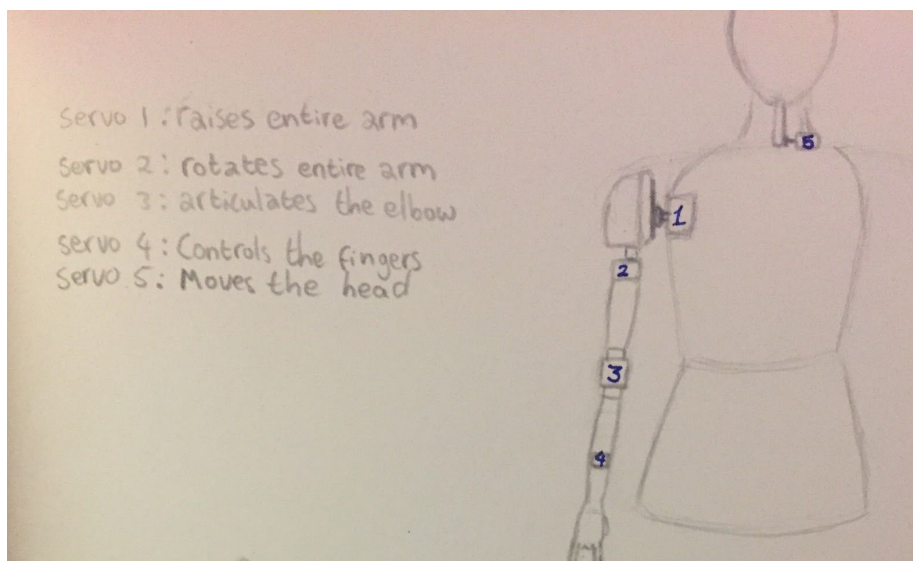 servo 1: raises entire arm
servo 2: rotates entire arm
servo 3: articulates the elbow
servo 4: Controls the fingers
servo 5: Moves the head
5
1
2
3
4